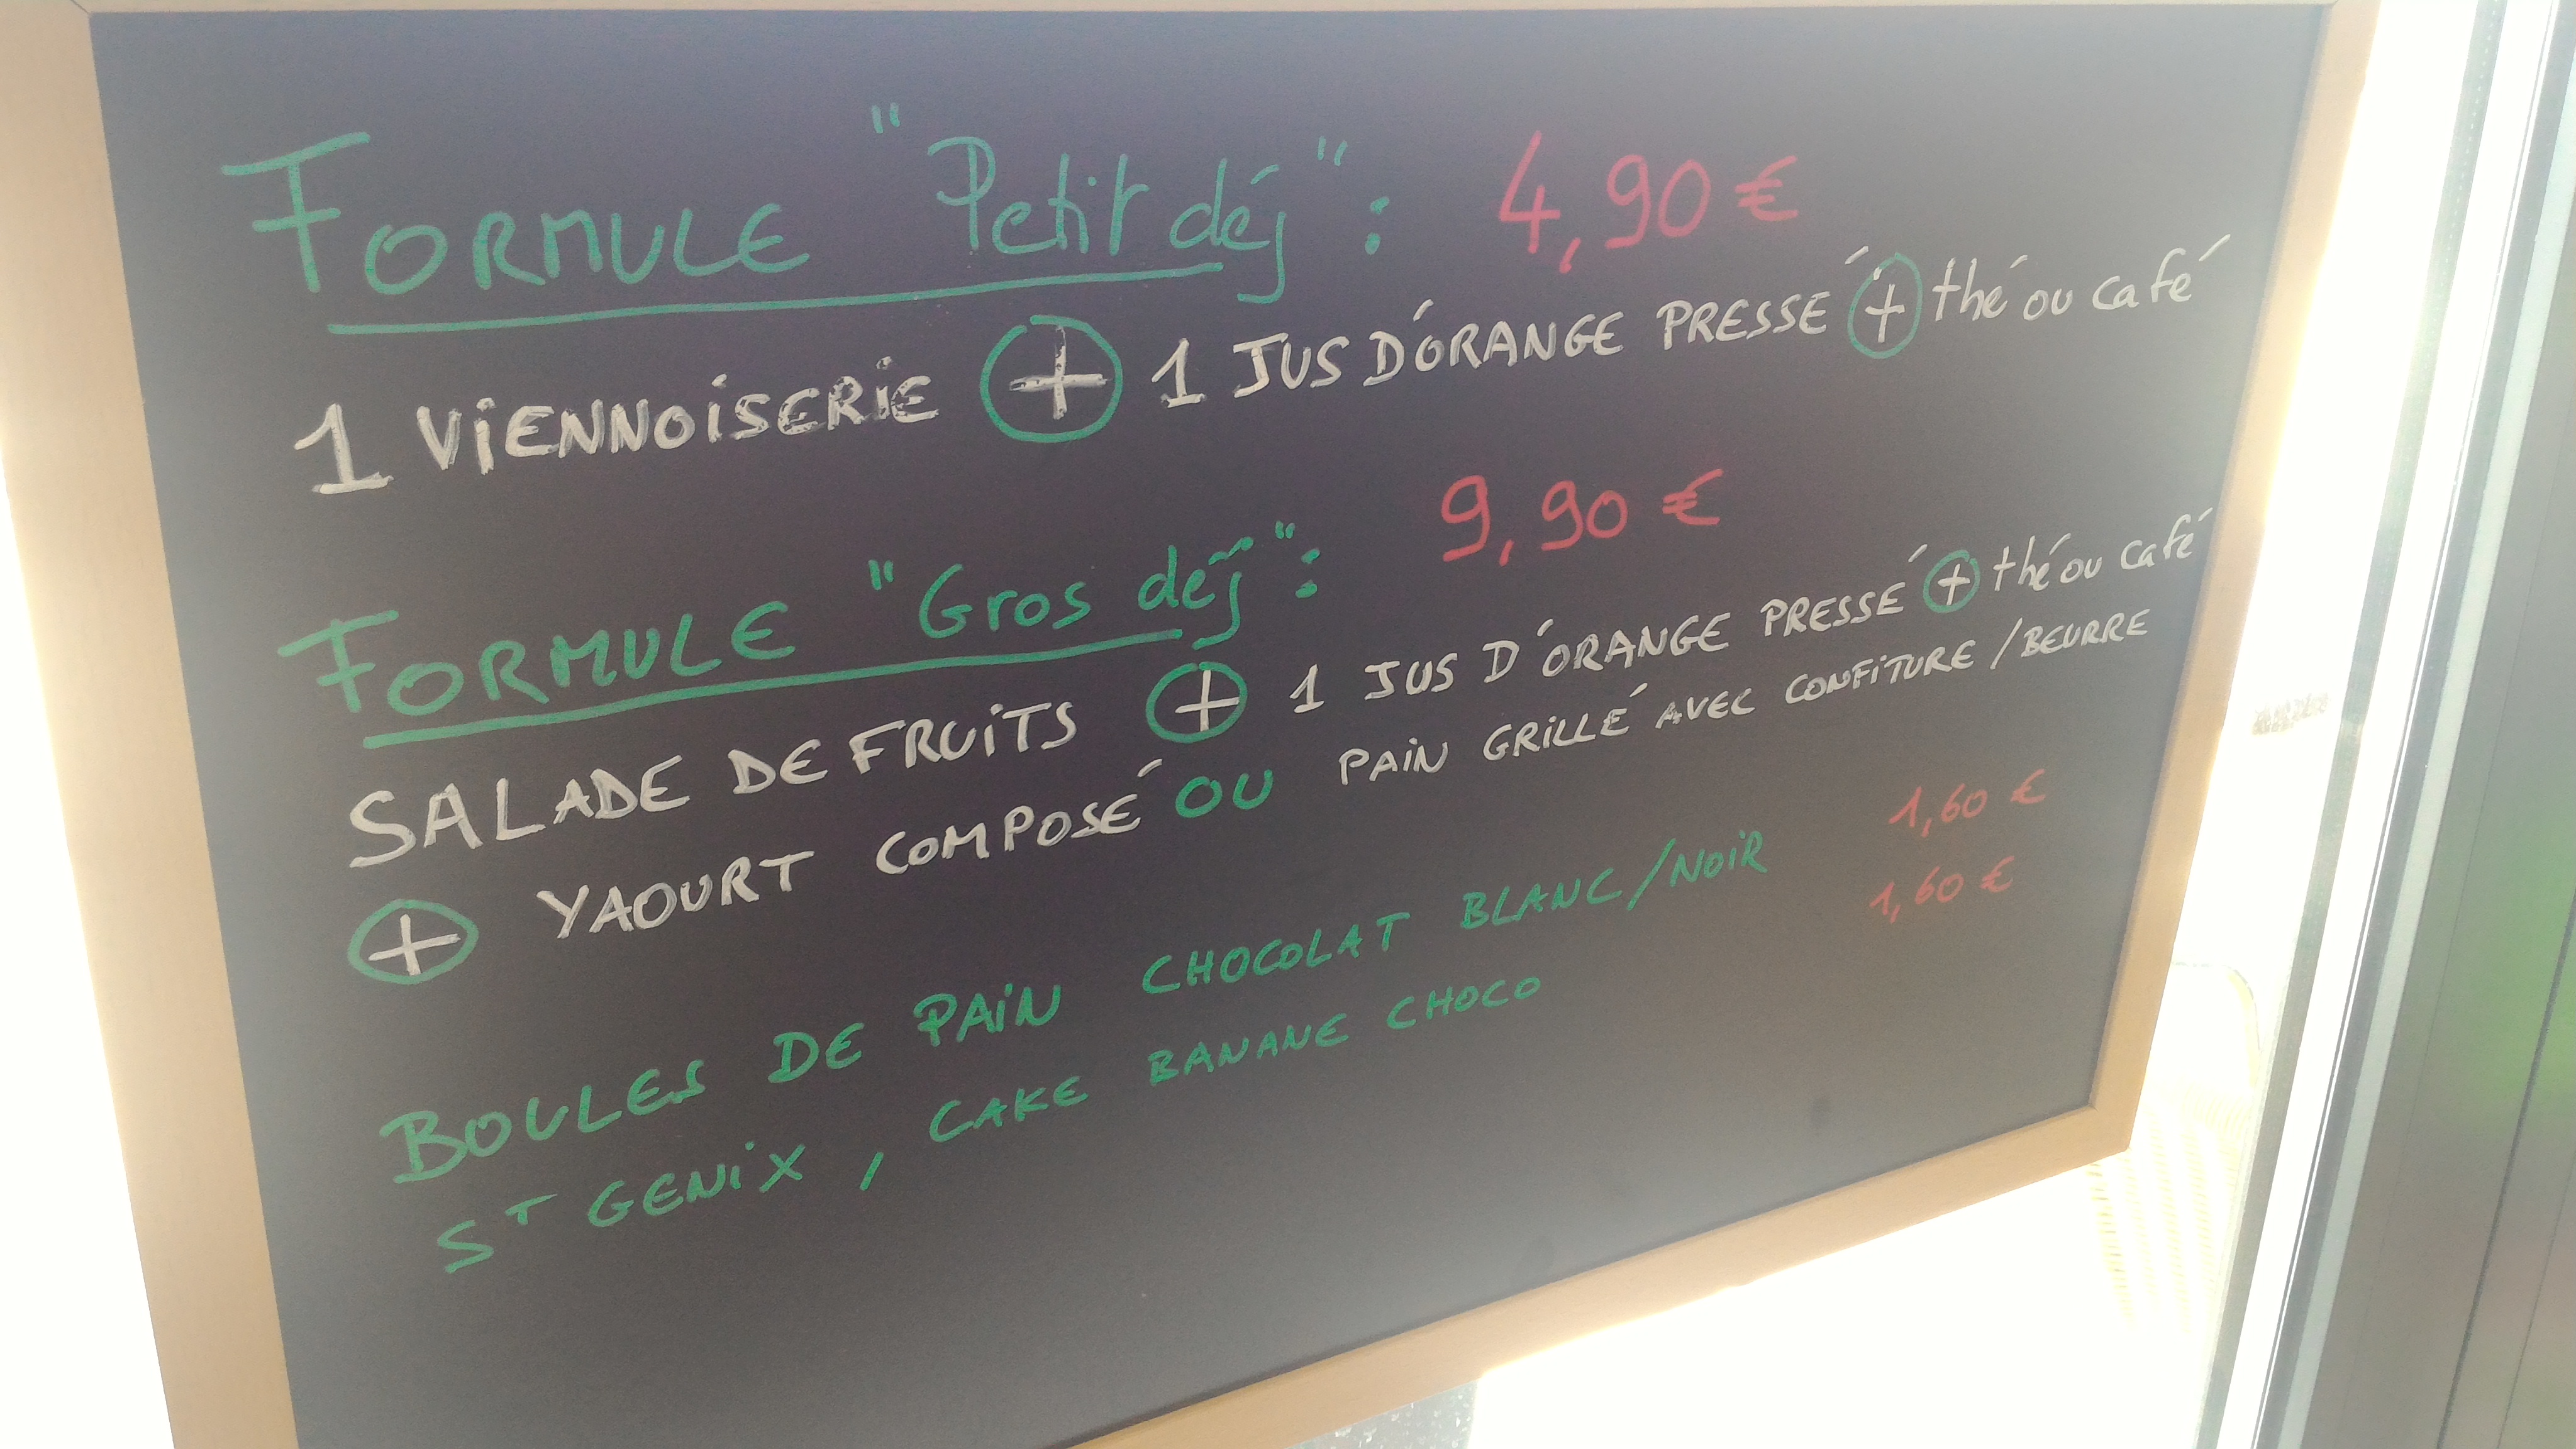 FORMULE "Petit déj" : 4,90 €
1 VIENNOISERIE + 1 JUS D'ORANGE PRESSÉ + thé ou café
FORMULE "Gros déj" : 9,90 €
SALADE DE FRUITS + 1 JUS D'ORANGE PRESSÉ + thé ou café
+ YAOURT COMPOSÉ OU PAIN GRILLÉ AVEC CONFITURE / BEURRE
BOULES DE PAIN CHOCOLAT BLANC/NOIR 1,60 €
ST GENIX, CAKE BANANE CHOCO 1,60 €